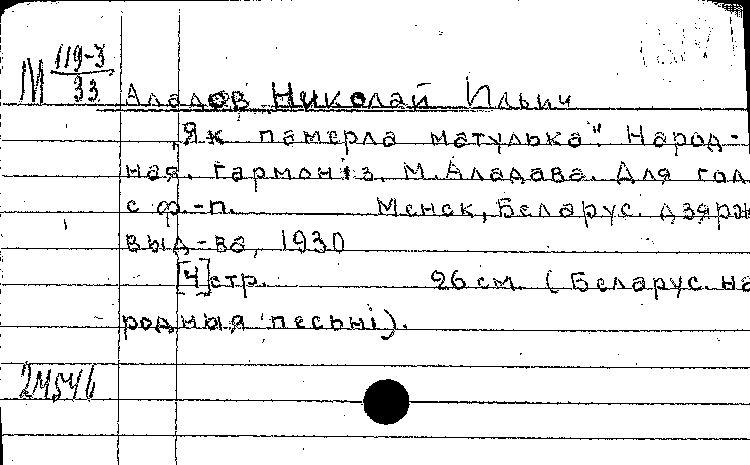 М 119-3/33
Аладов Николай Ильич
„Як памерла матулька". Народ-
ная. Гармоніз. М. Аладава. Для гол.
с ф.-п. Менск, Беларус. дзярж
выд-ва, 1930
[4] стр. 26 см. (Беларус. на
родныя песьні).